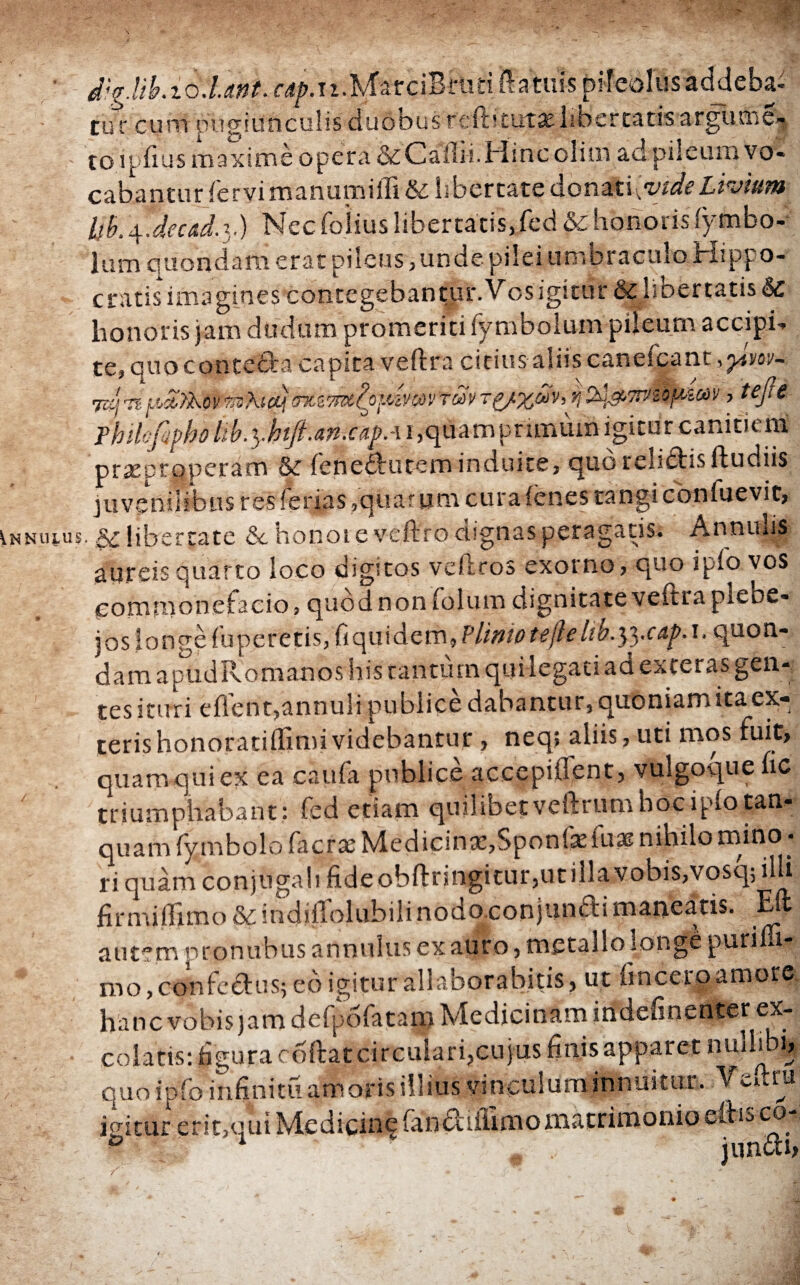 dig.lib.10.l.ant.cap.11.MarciBruti ſtatuis pileolus addeba-
tur cum pugiunculis duobus reſtitutæ libertatis argumẽ-
to ipſius maximè opera & Caſſii. Hinc olim ad pileum vo-
cabantur ſervi manumiſſi & libertate donati (vide Livium
lib.4.decad.3.) Nec ſolius libertatis, ſed & honoris ſymbo-
lum quondam erat pileus, unde pilei umbraculo Hippo-
cratis imagines contegebantur. Vos igitur & libertatis &
honoris jam dudum promeriti ſymbolum pileum accipi-
te, quo contecta capita veſtra citius aliis caneſcant,
teſte
Philoſopho lib.3.hiſt.an.cap.11, quam primùm igitur canitiem
præproperam & ſenectutem induite, quò relictis ſtudiis
juvenilibus res ſerias, quarum cura ſenes tangi conſuevit,
ANNULUS. & libertate & honore veſtro dignas peragatis. Annulis
aureis quarto loco digitos veſtros exorno, quo ipſo vos
commonefacio, quòd non ſolum dignitate veſtra plebe-
jos longè ſuperetis, ſiquidem, Plinio teſte lib.33.cap.1. quon-
dam apud Romanos his tantùm qui legati ad exteras gen-
tes ituri eſſent, annuli publicè dabantur, quoniam ita ex-
teris honoratiſſimi videbantur, neq; aliis, uti mos fuit,
quam qui ex ea cauſa publicè accepiſſent, vulgoque ſic
triumphabant: ſed etiam quilibet veſtrum hoc ipſo tan-
quam ſymbolo ſacræ Medicinæ, Sponſæ ſuæ nihilo mino-
ri quàm conjugali fide obſtringitur, ut illa vobis, vosq; illi
firmiſſimo & indiſſolubili nodo conjuncti maneatis. Eſt
autem pronubus annulus ex auro, metallo longè puriſſi-
mo, confectus; eò igitur allaborabitis, ut ſincero amore
hanc vobis jam deſpõſatam Medicinam indeſinenter ex-
colatis: figura cõſtat circulari, cujus finis apparet nullibi,
quo ipſo infinitũ amoris illius vinculum innuitur. Veſtrũ
igitur erit, qui Medicinę ſanctiſſimo matrimonio eſtis co-
juncti,